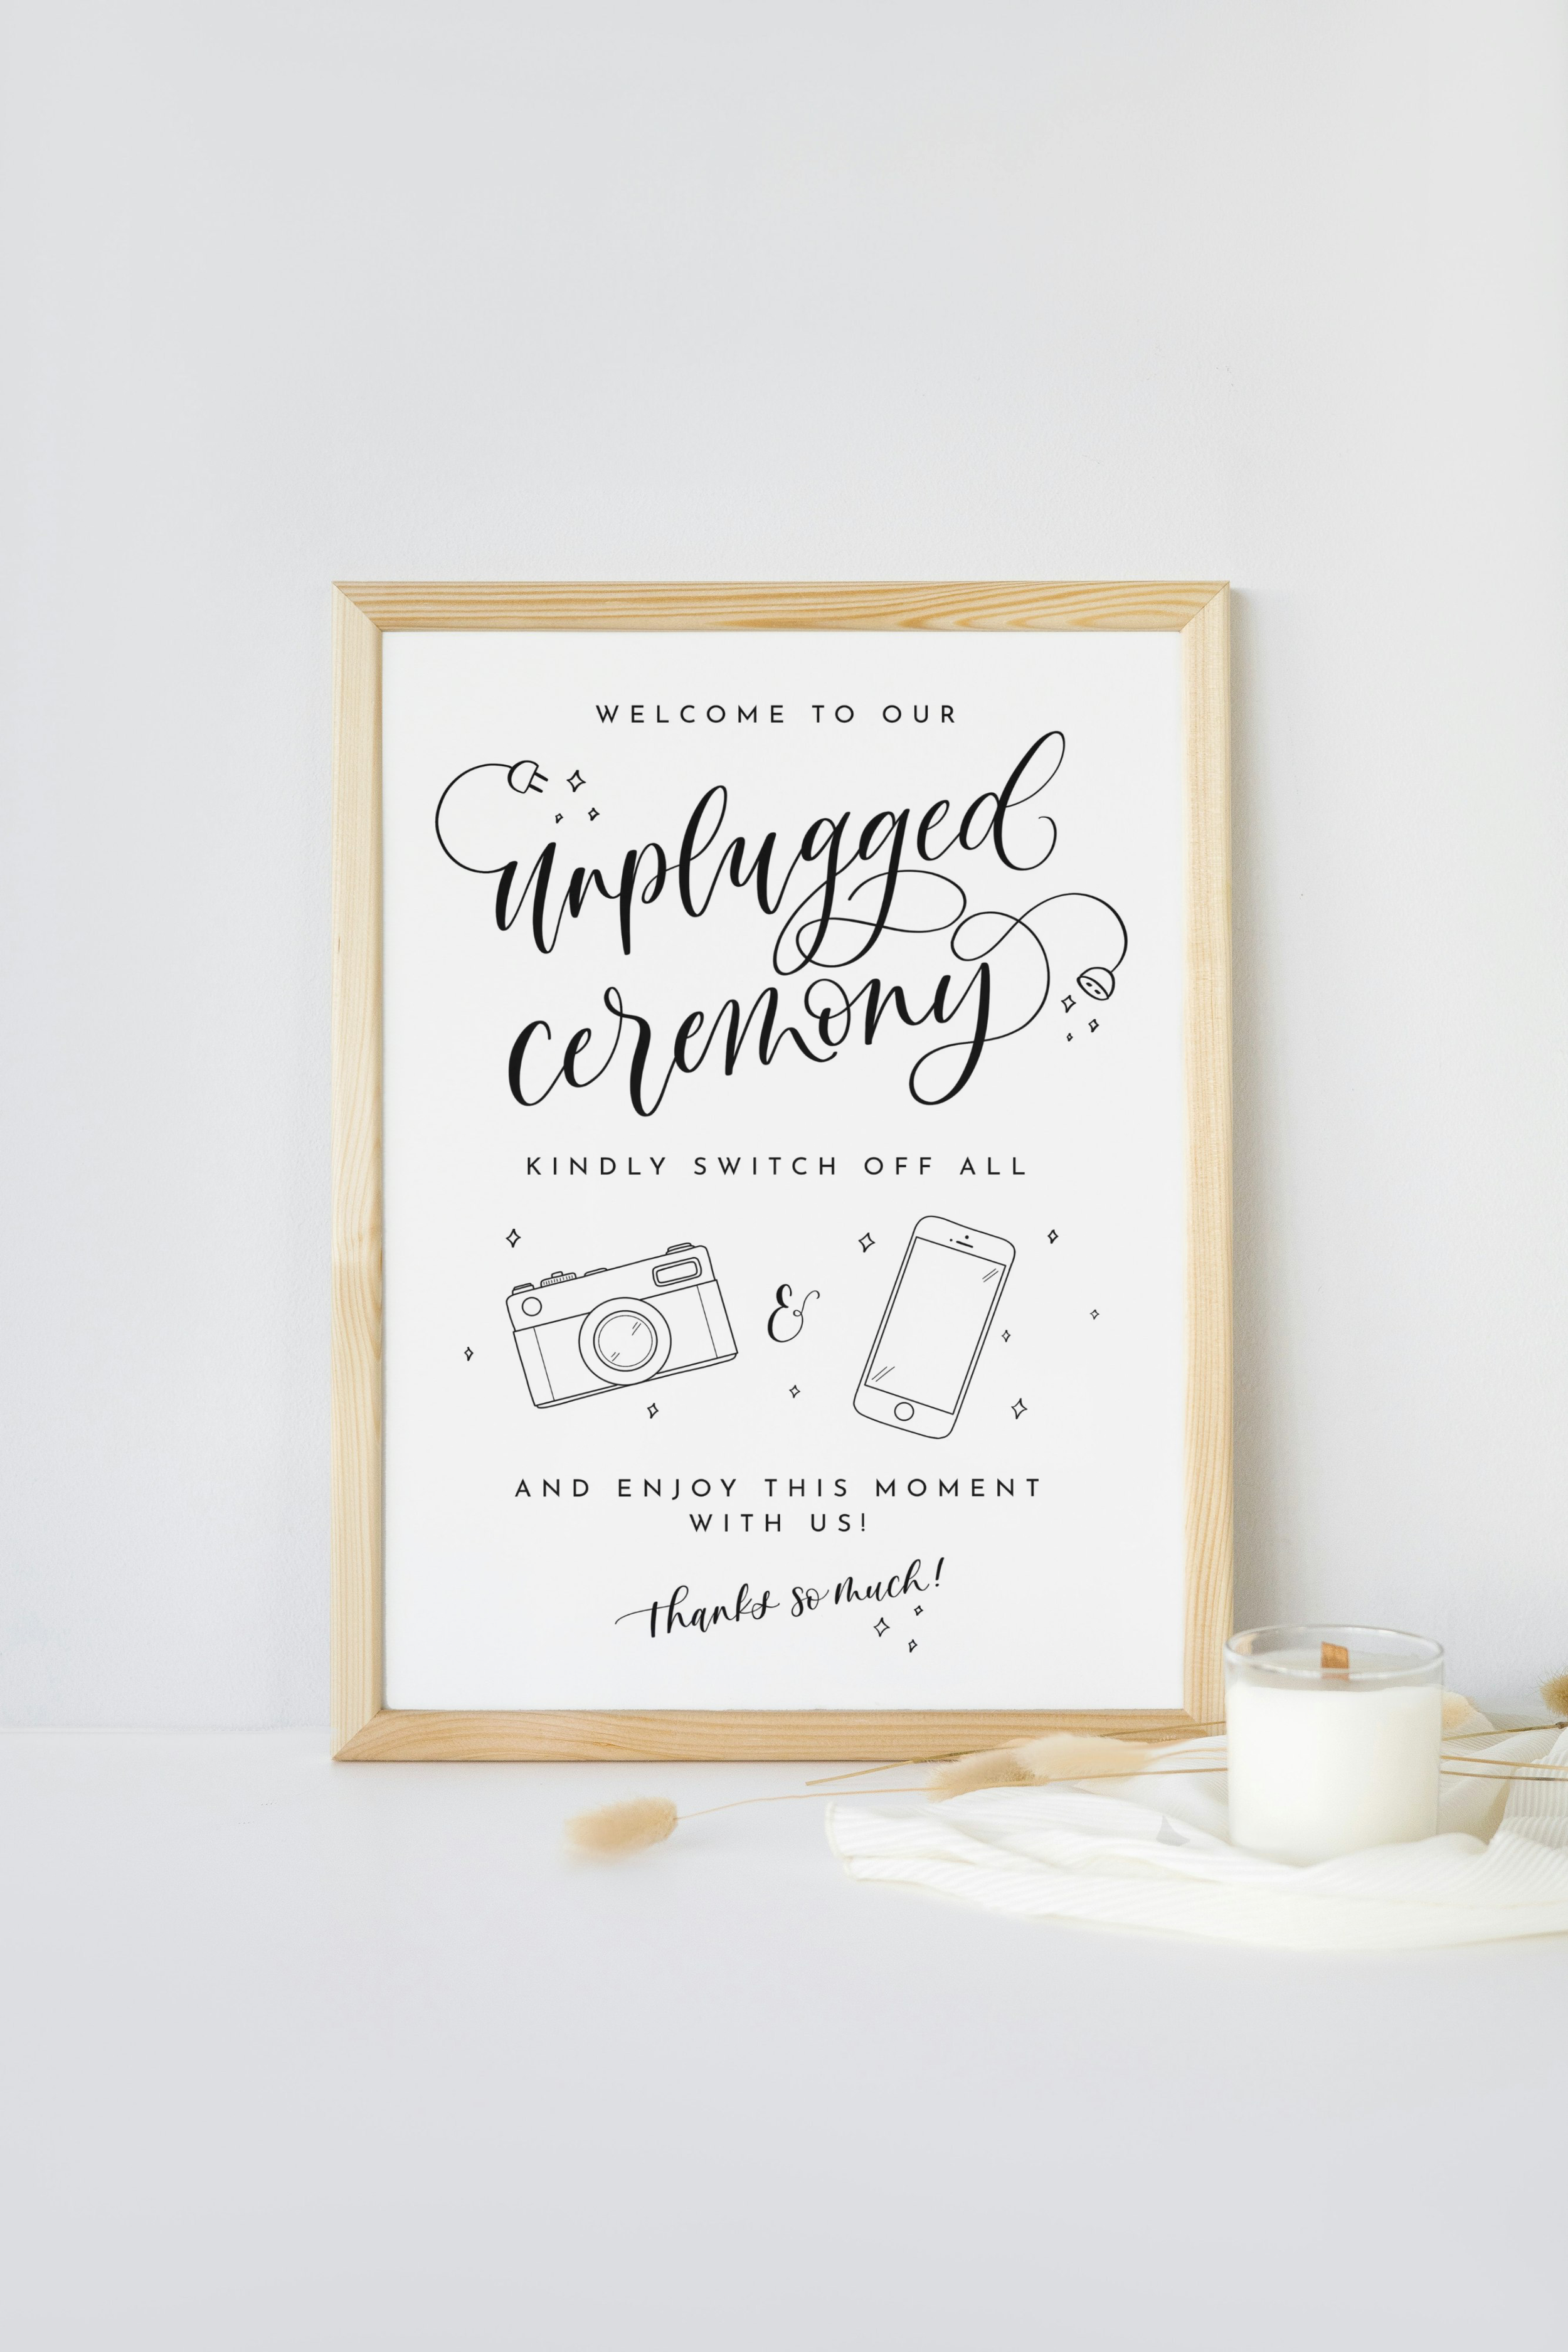 WELCOME TO OUR
Unplugged
ceremony
KINDLY SWITCH OFF ALL
&
AND ENJOY THIS MOMENT
WITH US!
thanks so much!